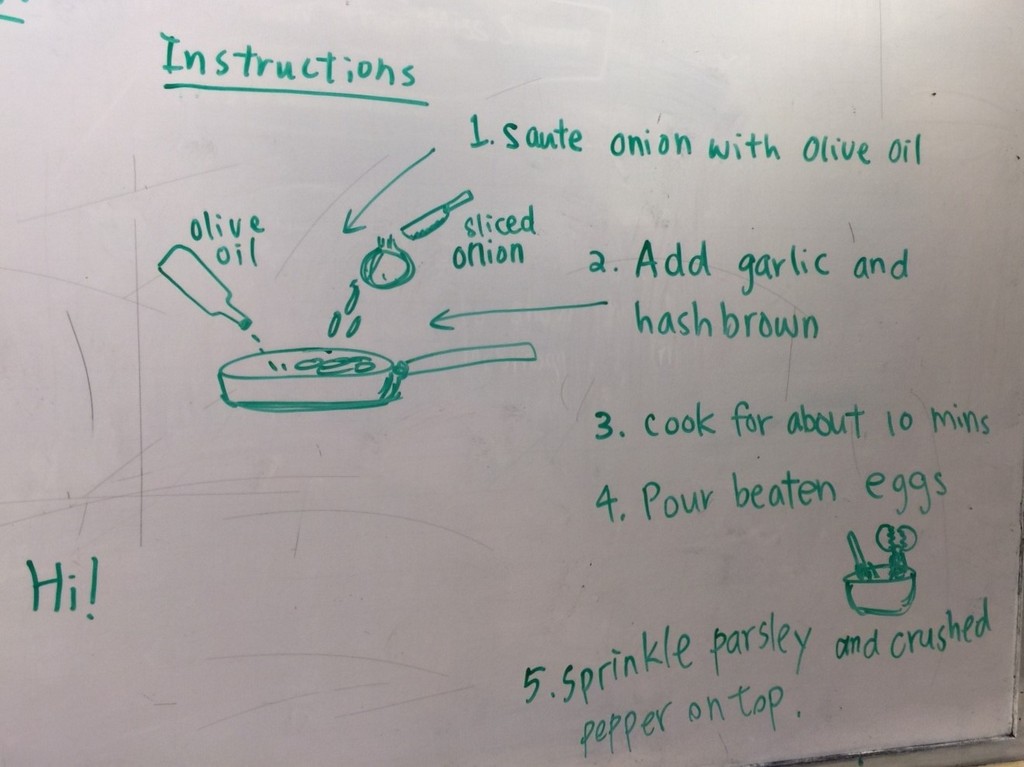 Instructions
1. Saute onion with olive oil
olive
oil
sliced
onion
2. Add garlic and
hashbrown
3. cook for about 10 mins
4. Pour beaten eggs
Hi!
5. Sprinkle parsley and crushed
pepper on top.